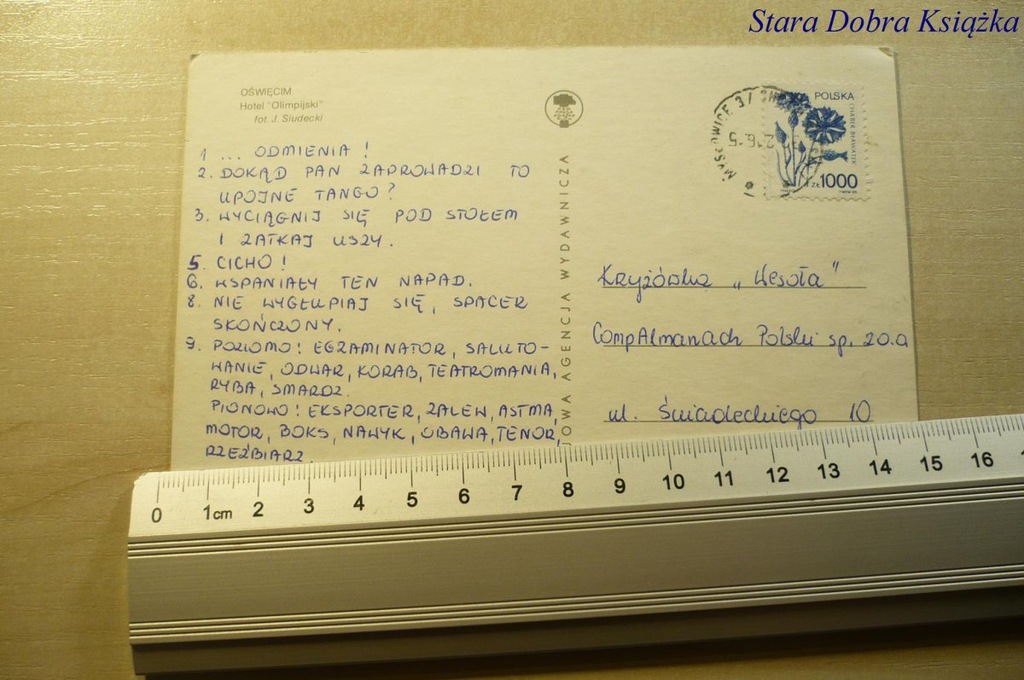 Stara Dobra Książka
OŚWIĘCIM
Hotel "Olimpijski"
fot. J. Siudecki
1 ... ODMIENIA !
2. DOKĄD PAN ZAPROWADZI TO
UPOJNE TANGO?
3. WYCIĄGNIJ SIĘ POD STOŁEM
I ZATKAJ USZY.
5. CICHO !
6. WSPANIAŁY TEN NAPAD.
8. NIE WYGŁUPIAJ SIĘ, SPACER
SKOŃCZONY.
9. POZIOMO: EGZAMINATOR, SALUTO-
WANIE, ODWAR, KORAB, TEATROMANIA,
RYBA, SMARDZ.
PIONOWO: EKSPORTER, ZALEW, ASTMA,
MOTOR, BOKS, NAWYK, OBAWA, TENOR,
RZEŹBIARZ
JOWA AGENCJA WYDAWNICZA
MYSŁOWICE
POLSKA
CHABER BŁAWATEK
ZŁ 1000
Krzyżówka „Wesoła"
CompAlmanach Polski sp. z o.o
ul. Śniadeckiego 10
0 1cm 2 3 4 5 6 7 8 9 10 11 12 13 14 15 16